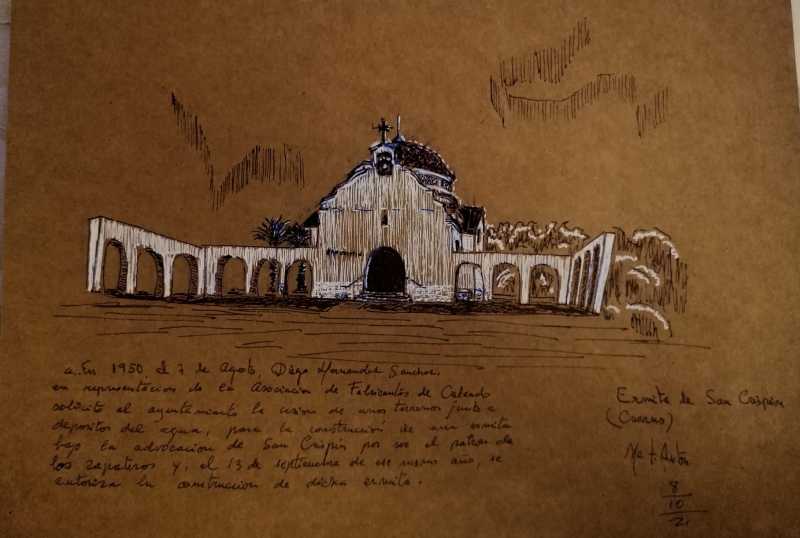 a. En 1950 el 7 de Agosto, Diego Hernandez Sanchez.
en representacion de la Asociacion de Fabricantes de Calzado
solicitó al ayuntamiento la cesion de unos terrenos junto a
depositos del agua, para la construccion de una ermita
bajo la advocacion de San Crispin por ser el patron de
los zapateros y, el 13 de septiembre de ese mismo año, se
autoriza la construccion de dicha ermita.
Ermita de San Crispin
8
10
2